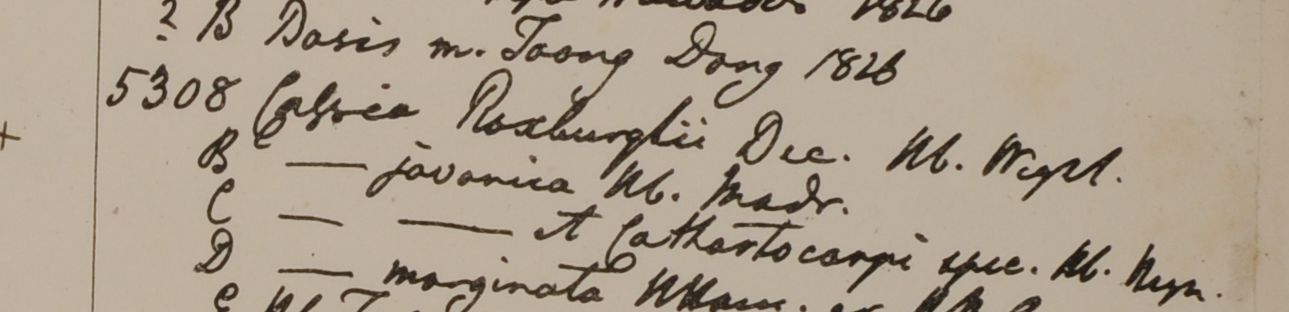 1826
? B Dasis m. Toong Dong 1826
5308 Cassia Roxburghii Dec. Hb. Wight.
B — javanica Hb. Madr.
C — — et Cathartocarpi spec. Hb.
D — marginata
E Hb.